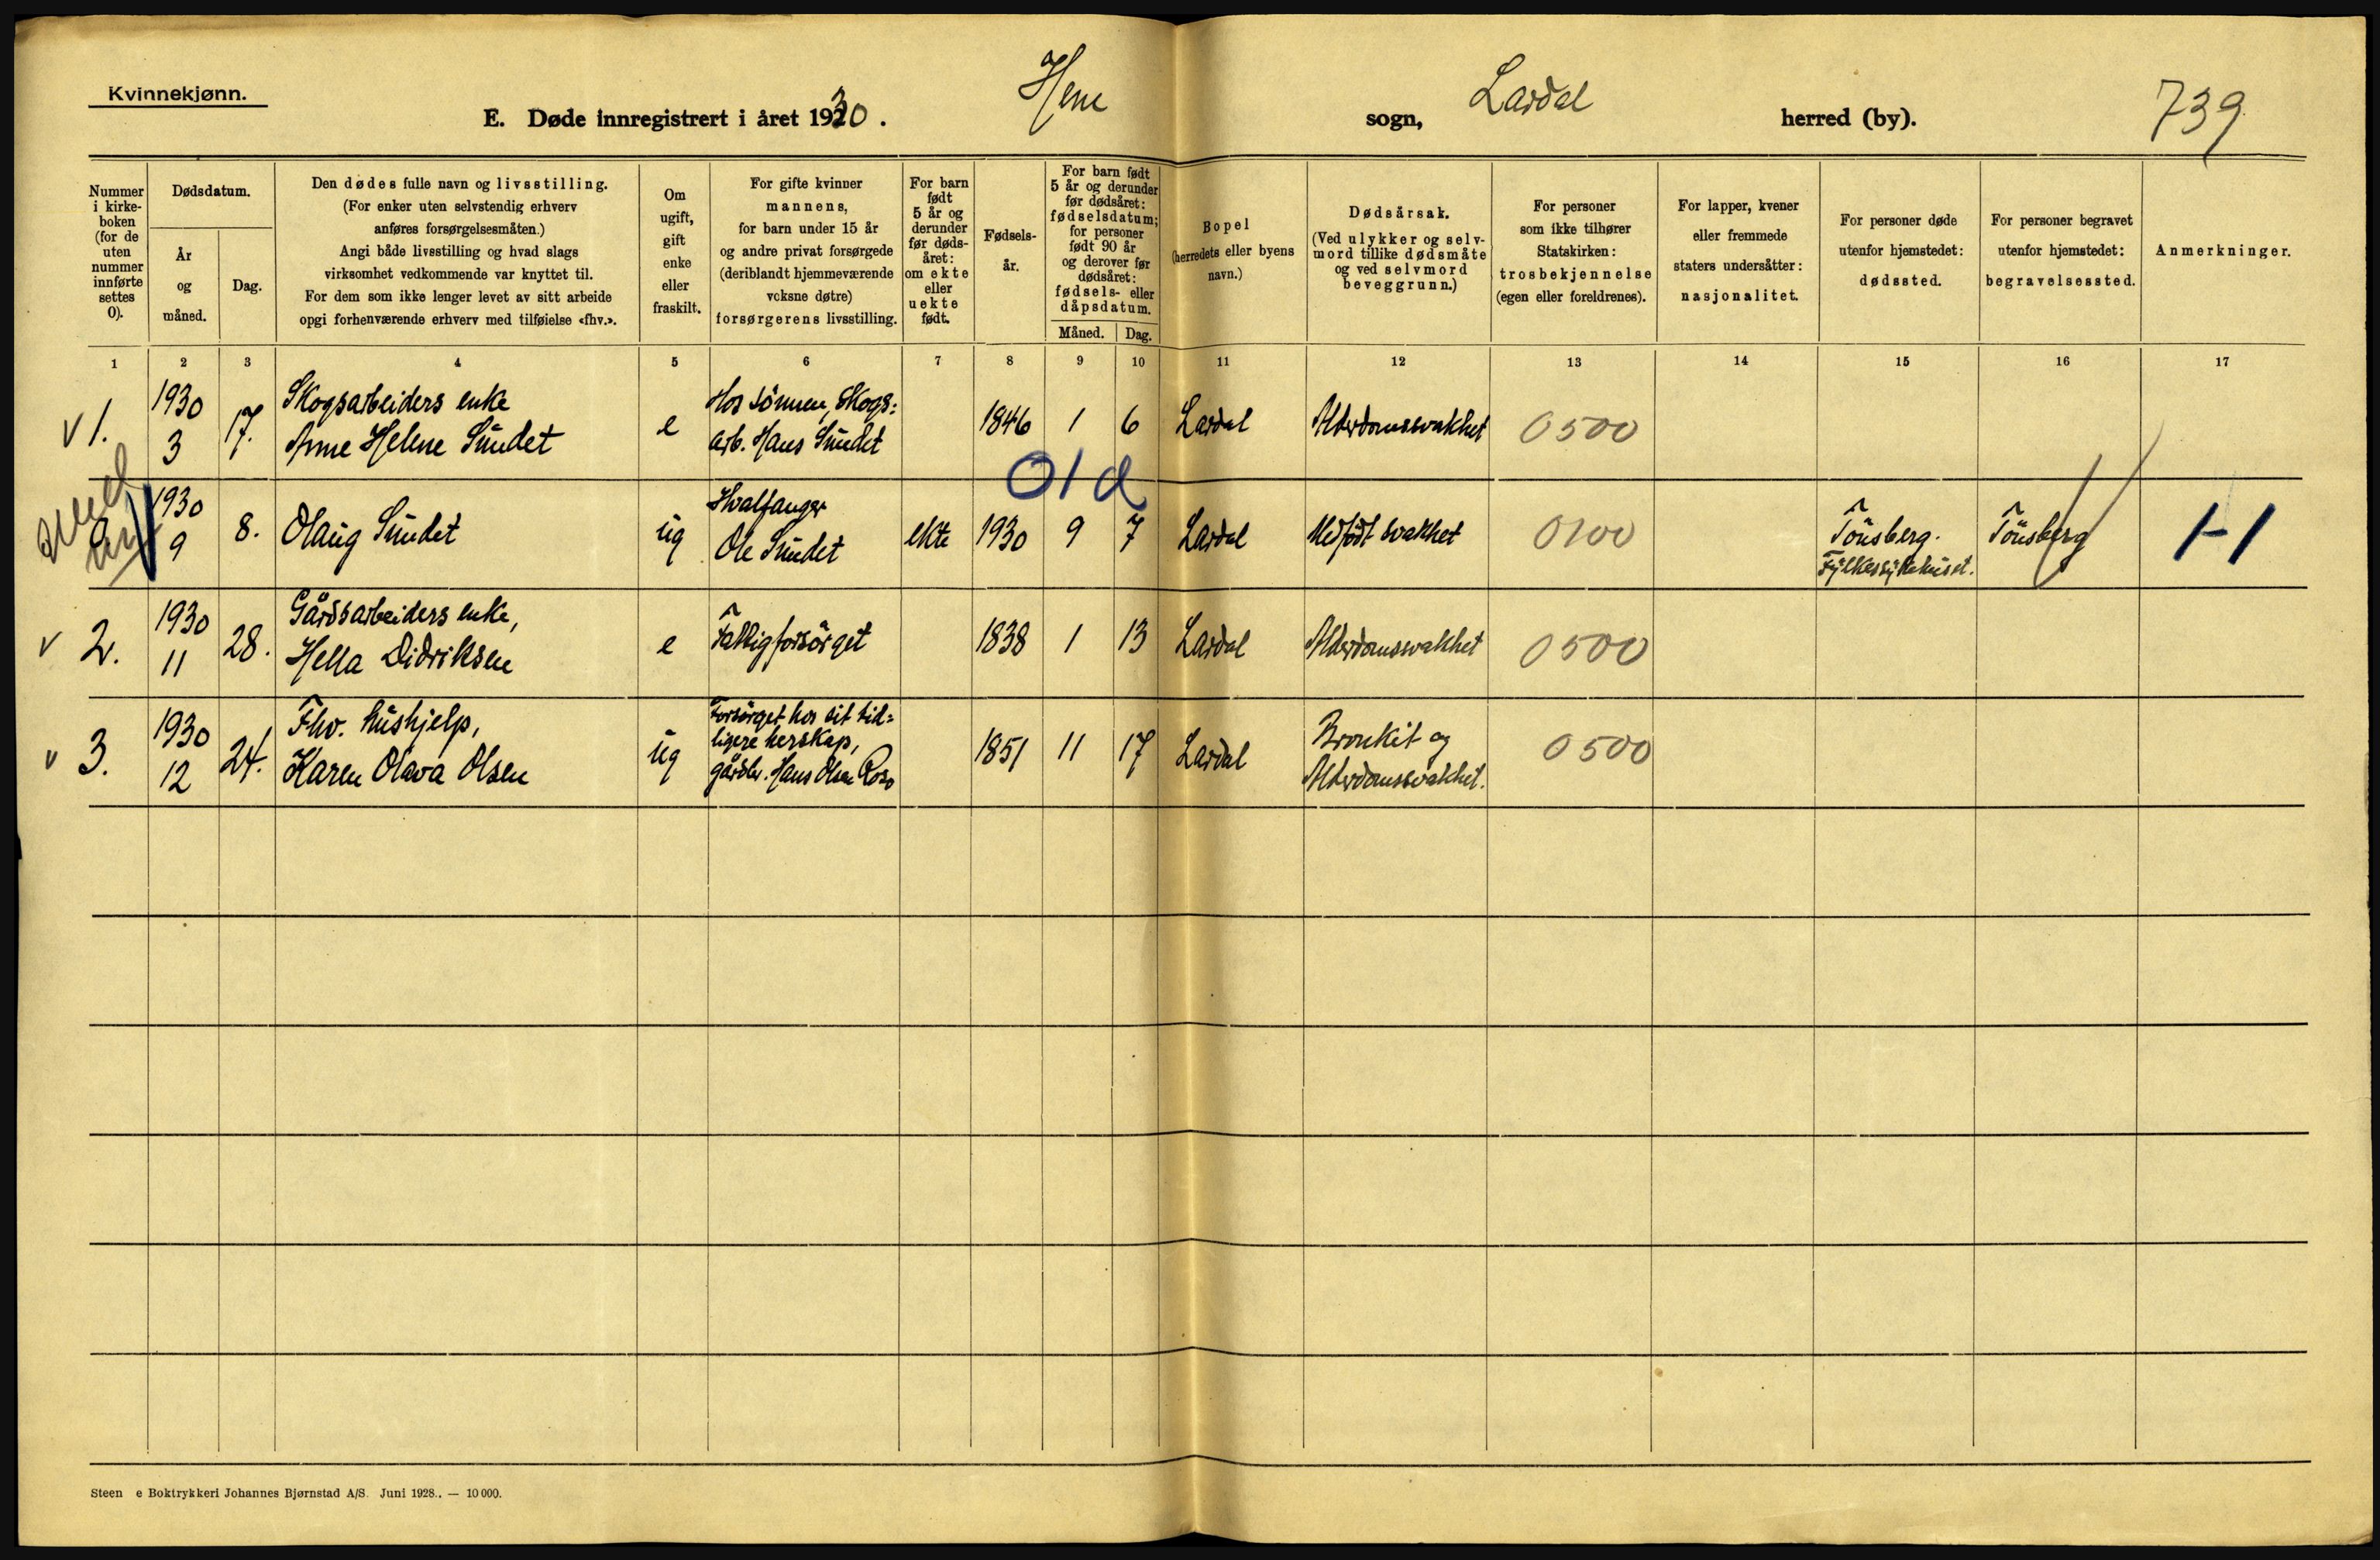 Kvinnekjønn.
E. Døde innregistrert i året 1930.
Hem
sogn,
Lardal
herred (by).
739
Nummer
i kirke-
boken
(for de
uten
nummer
innførte
settes
0).
Dødsdatum.
År
og
måned.
Dag.
Den dødes fulle navn og livsstilling.
(For enker uten selvstendig erhverv
anføres forsørgelsesmåten.)
Angi både livsstilling og hvad slags
virksomhet vedkommende var knyttet til.
For dem som ikke lenger levet av sitt arbeide
opgi forhenværende erhverv med tilføielse «fhv.».
Om
ugift,
gift
enke
eller
fraskilt.
For gifte kvinner
mannens,
for barn under 15 år
og andre privat forsørgede
(deriblandt hjemmeværende
voksne døtre)
forsørgerens livsstilling.
For barn
født
5 år og
derunder
før døds-
året:
om ekte
eller
uekte
født.
Fødsels-
år.
For barn født
5 år og derunder
før dødsåret:
fødselsdatum;
for personer
født 90 år
og derover før
dødsåret:
fødsels- eller
dåpsdatum.
Måned.
Dag.
Bopel
(herredets eller byens
navn.)
Dødsårsak.
(Ved ulykker og selv-
mord tillike dødsmåte
og ved selvmord
beveggrunn.)
For personer
som ikke tilhører
Statskirken:
trosbekjennelse
(egen eller foreldrenes).
For lapper, kvener
eller fremmede
staters undersåtter:
nasjonalitet.
For personer døde
utenfor hjemstedet:
dødssted.
For personer begravet
utenfor hjemstedet:
begravelsessted.
Anmerkninger.
1 2 3 4 5 6 7 8 9 10 11 12 13 14 15 16 17
v 1.
1930
3
17.
Skogsarbeiders enke
Anne Helene Sundet
e
Hos sönnen, Skogs:
arb. Hans Sundet
1846
1
6
Lardal
Alderdomssvakhet
0500
01 d
1930
9
8.
Olaug Sundet
ug
Hvalfanger
Ole Sundet
ekte
1930
9
7
Lardal
Medfödt svakhet
0100
Tönsberg.
Fylkessykehuset.
Tönsberg
1-1
v 2.
1930
11
28.
Gårdsarbeiders enke,
Hella Didriksen
e
Fattigforsörget
1838
1
13
Lardal
Alderdomsvakhet
0500
v 3.
1930
12
24.
Fhv. hushjelp,
Karen Olava Olsen
ug
Forsörget hos sit tid=
ligere herskap,
gårdbr. Hans Olsen
1851
11
17
Lardal
Bronkit og
Alderdomssvakhet.
0500
Steen e Boktrykkeri Johannes Bjørnstad A/S. Juni 1928.. — 10 000.